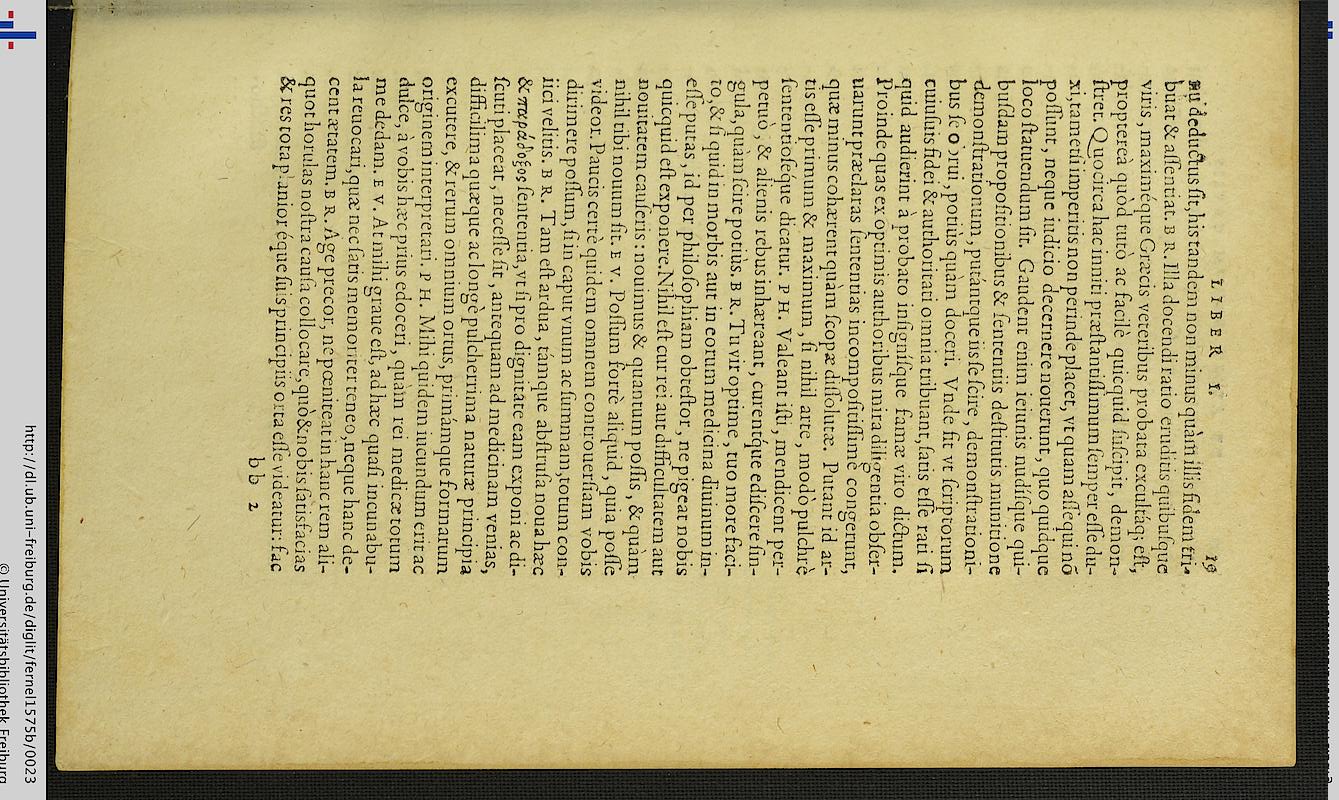 LIBER I. 19
nu deductus sit, his tandem non minus quàm illis fidem tri-
buat & assentiat. BR. Illa docendi ratio eruditis quibusque
viris, maximéque Græcis veteribus probata excultáq; est,
propterea quòd tutò ac facilè quicquid suscipit, demon-
stret. Quocirca hac inniti præstantissimum semper esse du-
xi, tametsi imperitis non perinde placet, vt quam assequi nõ
possunt, neque iudicio decernere nouerunt, quo quidque
loco statuendum sit. Gaudent enim ieiunis nudísque qui-
busdam propositionibus & sententiis destitutis munitione
demonstrationum, putántque iis se scire, demonstrationi-
bus se obrui, potiùs quàm doceri. Vnde fit vt scriptorum
cuiusuis fidei & authoritati omnia tribuant, satis esse rati si
quid audierint à probato insignísque famæ viro dictum.
Proinde quas ex optimis authoribus mira diligentia obser-
uarunt præclaras sententias incompositissimè congerunt,
quæ minus cohærent quàm scopæ dissolutæ. Putant id ar-
tis esse primum & maximum, si nihil arte, modò pulchrè
sententioséque dicatur. PH. Valeant isti, mendicent per-
petuò, & alienis rebus inhæreant, curentque ediscere sin-
gula, quàm scire potiùs. BR. Tu vir optime, tuo more faci-
to, & si quid in morbis aut in eorum medicina diuinum in-
esse putas, id per philosophiam obtestor, ne pigeat nobis
quicquid est exponere. Nihil est cui rei aut difficultatem aut
nouitatem causeris: nouimus & quantum possis, & quàm
nihil tibi nouum sit. EV. Possum fortè aliquid, quia posse
videor. Paucis certè quidem omnem controuersiam vobis
dirimere possum, si in caput vnum ac summam, totum con-
iici velitis. BR. Tam est ardua, támque abstrusa noua hæc
& παράδοξος sententia, vt si pro dignitate eam exponi ac di-
scuti placeat, necesse sit, antequam ad medicinam venias,
difficilima quæque ac longè pulcherrima naturæ principia
excutere, & rerum omnium ortus, primámque formarum
originem interpretari. PH. Mihi quidem iucundum erit ac
dulce, à vobis hæc prius edoceri, quàm rei medicæ totum
me dedam. EV. At mihi graue est, ad hæc quasi incunabu-
la reuocari, quæ nec satis memoriter teneo, neque hanc de-
cent ætatem. BR. Age precor, ne pœniteat in hanc rem ali-
quot horulas nostra causa collocare, quò & nobis satisfacias
& res tota planior éque suis principiis orta esse videatur: fac
bb 2
http://dl.ub.uni-freiburg.de/diglit/fernel1575b/0023
© Universitätsbibliothek Freiburg